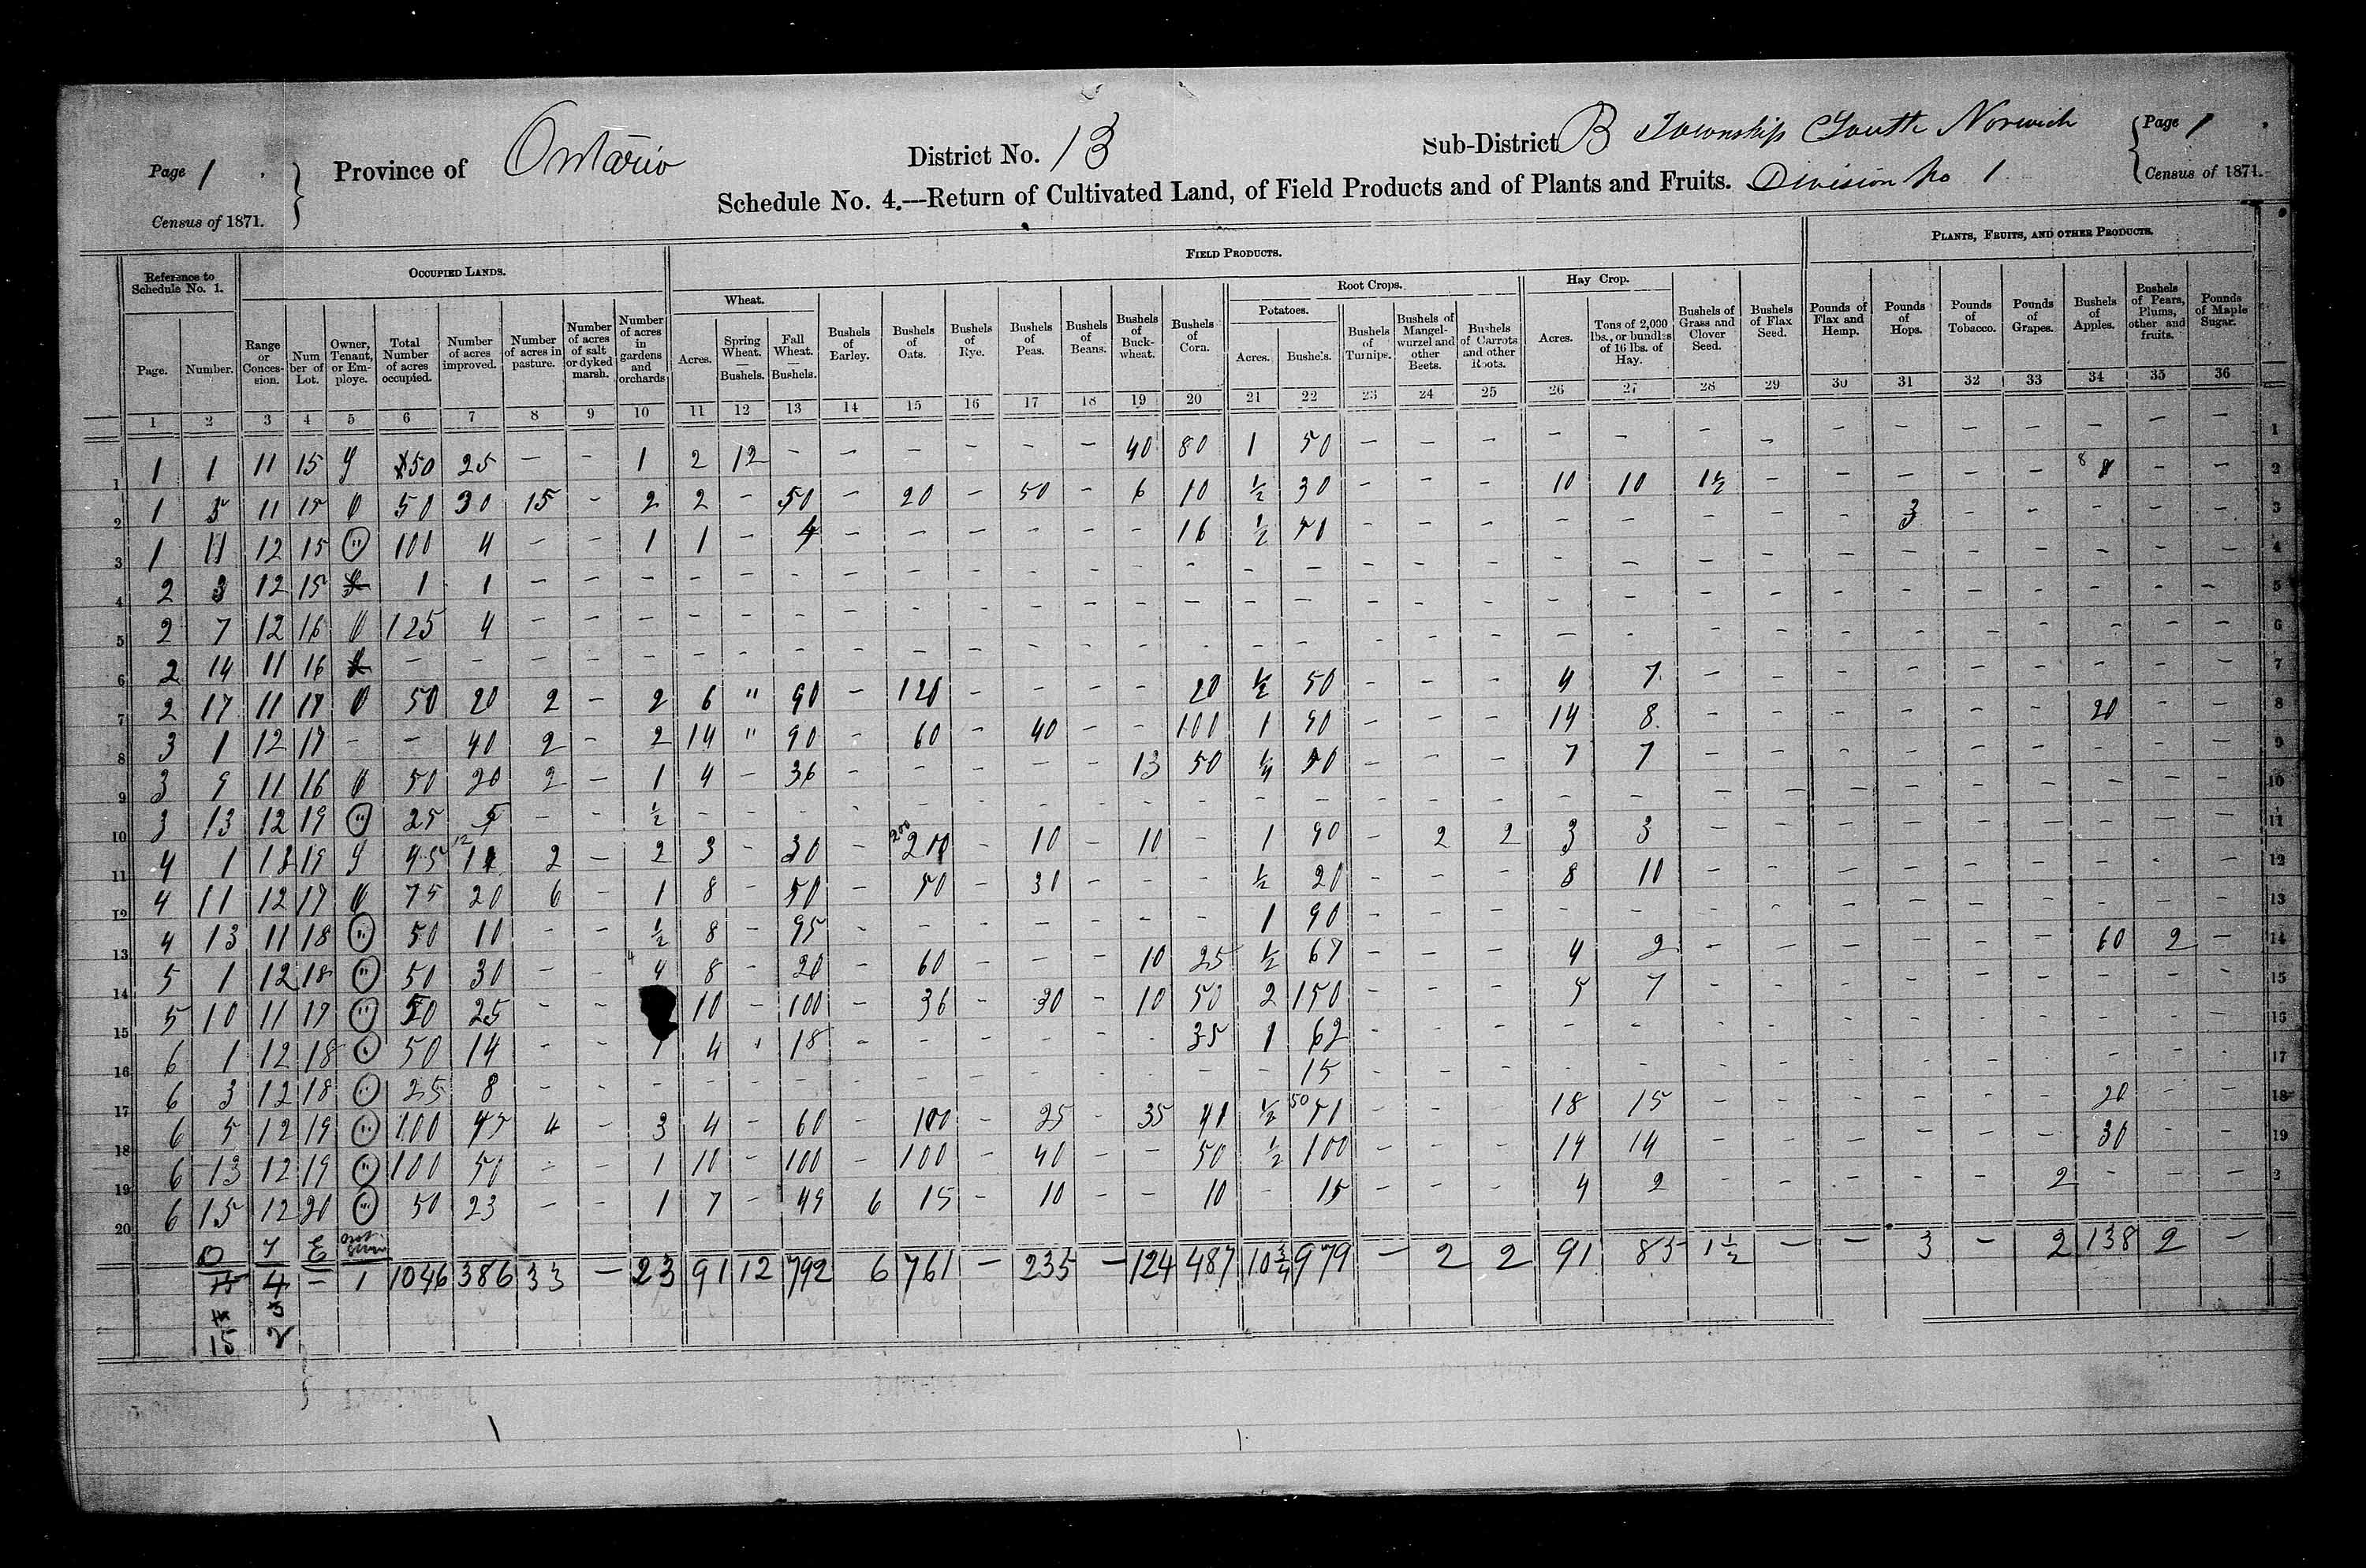 Page 1 . Province of Ontario District No. 13 Sub-District B Township South Norwich Page 1
Census of 1871. Schedule No. 4.—Return of Cultivated Land, of Field Products and of Plants and Fruits. Division No 1 Census of 1871.
Reference to Schedule No. 1. OCCUPIED LANDS. FIELD PRODUCTS. PLANTS, FRUITS, AND OTHER PRODUCTS.
Wheat. Root Crops. Potatoes. Hay Crop.
Page. Number. Range or Conces-sion. Num ber of Lot. Owner, Tenant, or Em-ploye. Total Number of acres occupied. Number of acres improved. Number of acres in pasture. Number of acres of salt or dyked marsh. Number of acres in gardens and orchards Acres. Spring Wheat. Bushels. Fall Wheat. Bushels. Bushels of Barley. Bushels of Oats. Bushels of Rye. Bushels of Peas. Bushels of Beans. Bushels of Buck-wheat. Bushels of Corn. Acres. Bushels. Bushels of Turnips. Bushels of Mangel-wurzel and other Beets. Bushels of Carrots and other Roots. Acres. Tons of 2,000 lbs., or bundles of 16 lbs. of Hay. Bushels of Grass and Clover Seed. Bushels of Flax Seed. Pounds of Flax and Hemp. Pounds of Hops. Pounds of Tobacco. Pounds of Grapes. Bushels of Apples. Bushels of Pears, Plums, other and fruits. Pounds of Maple Sugar.
1 2 3 4 5 6 7 8 9 10 11 12 13 14 15 16 17 18 19 20 21 22 23 24 25 26 27 28 29 30 31 32 33 34 35 36
1 1 1 11 15 50 25 - - 1 2 12 - - - - - - 40 80 1 50 - - - - - - - - - - - - - - 1
2 1 3 11 15 0 50 30 15 - 2 2 - 50 - 20 - 50 - 6 10 ½ 30 - - - 10 10 1½ - - - - - 8 - - 2
3 1 11 12 15 " 100 4 - - 1 1 - 4 - - - - - - 16 ½ - - - - - - - - 3 - - - - - 3
4 2 3 12 15 1 1 - - - - - - - - - - - - - - - - - - - - - - - - - - - - - 4
5 2 7 12 16 0 125 4 - - - - - - - - - - - - - - - - - - - - - - - - - - - - - 5
6 2 14 11 16 - - - - - - - - - - - - - - - - - - - - - - - - - - - - - - - 6
7 2 17 11 0 50 20 2 - 2 6 " 90 - 120 - - - - 20 ½ 50 - - - 4 7 - - - - - - - - - 7
8 3 1 12 17 - - 40 2 - 2 14 " 90 - 60 - 40 - - 100 1 90 - - - 14 8 - - - - - - 20 - - 8
9 3 9 11 16 0 50 20 2 - 1 4 - 36 - - - - - 13 50 ¼ - - - 7 7 - - - - - - - - - 9
10 3 13 12 19 " 25 5 - - ½ - - - - - - - - - - - - - - - - - - - - - - - - - - 10
11 4 1 19 45 12 2 - 2 3 - 30 - 200 - 10 - 10 - 1 90 - 2 2 3 3 - - - - - - - - - 11
12 4 11 12 17 0 75 20 6 - 1 8 - 50 - 50 - 30 - - - ½ 20 - - - 8 10 - - - - - - - - - 12
13 4 13 11 18 " 50 10 - - ½ 8 - 95 - - - - - - - 1 90 - - - - - - - - - - - - - - 13
14 5 1 12 18 " 50 30 - - 4 8 - 20 - 60 - - - 10 25 ½ 67 - - - 4 2 - - - - - - 60 2 - 14
15 5 10 11 19 " 50 25 - - 10 - 100 - 36 - 30 - 10 50 2 150 - - - 5 7 - - - - - - - - - 15
16 6 1 12 18 " 50 14 - - 1 4 " 18 - - - - - - 35 1 62 - - - - - - - - - - - - - - 15
17 6 3 12 18 " 25 8 - - - - - - - - - - - - - - 15 - - - - - - - - - - - - - - 17
18 6 5 12 19 " 100 45 4 - 3 4 - 60 - 100 - 25 - 35 41 ½ 50 - - - 18 15 - - - - - - 20 - - 18
19 6 13 12 19 " 100 50 - - 1 10 - 100 - 100 - 40 - - 50 ½ 100 - - - 14 14 - - - - - - 30 - - 19
20 6 15 12 20 " 50 23 - - 1 7 - 49 6 15 - 10 - - 10 - 15 - - - 4 2 - - - - - 2 - - -
O T E not given
15 4 - 1 1046 386 33 - 23 91 12 792 6 761 - 235 - 124 487 10¾ 979 - 2 2 91 85 1½ - - 3 - 2 138 2 -
14 3
15 2